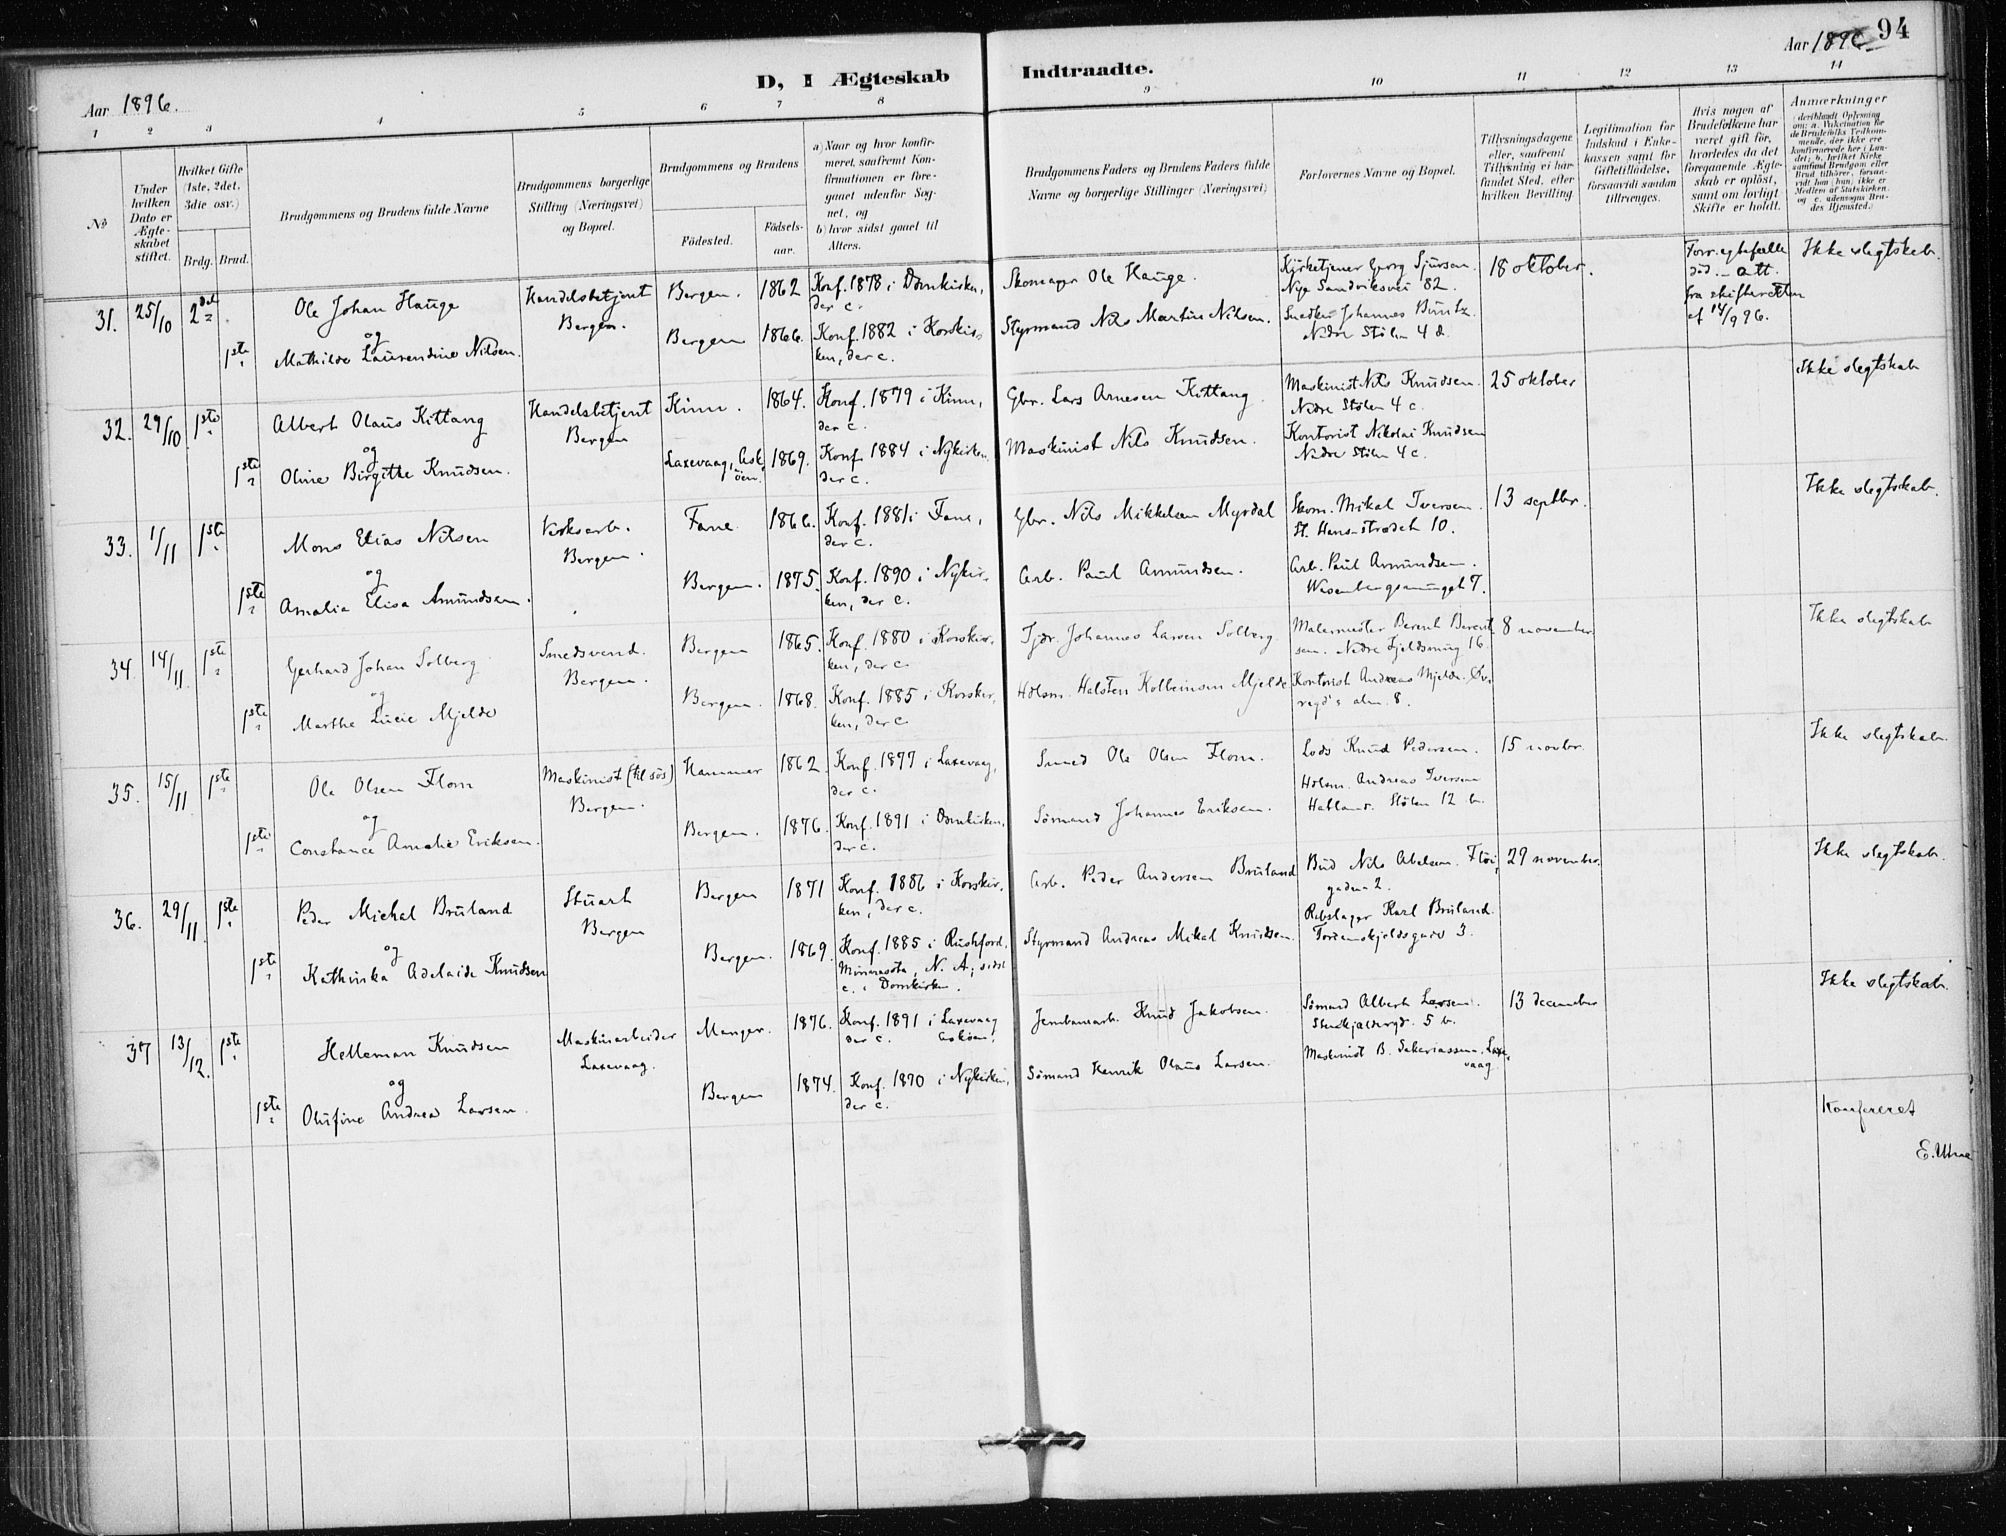 94
Aar 1896.
D, I Ægteskab Indtraadte.
Aar 1896.
1 2 3 4 5 6 7 8 9 10 11 12 13 14
No
Under hvilken Dato er Ægteskabet stiftet.
Hvilket Gifte (1ste, 2det, 3die osv.)
Brdg. Brud.
Brudgommens og Brudens fulde Navne
Brudgommens borgerlige Stilling (Næringsvei) og Bopæl.
Brudgommens og Brudens
Födested.
Födsels-aar.
a) Naar og hvor konfirmeret, saafremt Konfirmationen er foregaaet udenfor Sognet, og
b) hvor sidst gaaet til Alters.
Brudgommens Faders og Brudens Faders fulde Navne og borgerlige Stillinger (Næringsvei)
Forlovernes Navne og Bopæl.
Tillysningsdagene eller, saafremt Tillysning ei har fundet Sted, efter hvilken Bevilling
Legitimation for Indskud i Enkekassen samt for Giftetilladelse, forsaavidt saadan tiltrænges.
Hvis nogen af Brudefolkene har været gift för, hvorledes da det foregaaende Ægteskab er oplöst, samt om lovligt Skifte er holdt.
Anmærkninger
(deriblandt Oplysning om: a. Vakcination for de Brudefolks Vedkommende, der ikke ere konfirmerede her i Landet; b. hvilket Kirkesamfund Brudgom eller Brud tilhörer, forsaavidt han (hun) ikke er Medlem af Statskirken, og c. udensogns Brudes Hjemsted.)
31. 25/10 2det Ole Johan Hauge
og
1ste Mathilde Laurendine Nilsen.
Handelsbetjent
Bergen.
Bergen. 1862 Konf. 1878 i Domkirken,
der c.
Bergen 1866. Konf. 1882 i Korskir-
ken, der c.
Skomager Ole Hauge.
Styrmand Nils Martin Nilsen.
Kirketjener Georg Sjursen.
Nye Sandviksvei 82.
Snedker Johannes Buntz.
Nedre Stölen 4 d.
18 oktober.
Forr. egtefælle
död. – Att.
fra skifteretten
af 14/9 96.
Ikke slegtskab.
32. 29/10 1ste Albert Olaus Kittang
og
1ste Oline Birgitte Knudsen.
Handelsbetjent
Bergen
Kinn. 1864. Konf. 1879 i Kinn,
der c.
Laxevaag, Ask-
öen. 1869. Konf. 1884 i Nykirken.
der c.
Gbr. Lars Arnesen Kittang.
Maskinist Nils Knudsen.
Maskinist Nils Knudsen.
Nedre Stölen 4 c.
Kontorist Nikolai Knudsen
Nedre Stölen 4 c.
25 oktober
Ikke slegtskab
33. 1/11 1ste Mons Elias Nilsen
og
1ste Amalia Elisa Amundsen.
Verksarb.
Bergen.
Fane. 1866. Konf. 1881 i Fane,
der c.
Bergen. 1875. Konf. 1890 i Nykir-
ken, der c.
Gbr. Nils Mikkelsen Myrdal
Arb. Paul Amundsen.
Skom. Mikal Iversen.
St. Hans-strædet 10.
Arb. Paul Amundsen.
Wesenbergsmuget 7.
13 septbr.
Ikke slegtskab.
34 14/11 1ste Gerhard Johan Solberg
og
1ste Marthe Lucie Mjelde
Smedsvend.
Bergen.
Bergen 1865. Konf. 1880 i Korskir-
ken, der c.
Bergen. 1868. Konf. 1885 i Korskir-
ken, der c.
Johannes Larsen Solberg.
Hdsm. Halsten Kolbeinsen Mjelde
Malermester Berent Berent-
sen. Nedre Fjeldsmug 16.
Kontorist Andreas Mjelde. Öv-
regd's alm. 8.
8 november
Ikke slegtskab
35. 15/11 1ste Ole Olsen Flom
og
1ste Constance Amalie Eriksen.
Maskinist (til sös)
Bergen.
Hammer 1862. Konf. 1877 i Laxevaag,
der c.
Bergen. 1876. Konf. 1891 i Domkirken,
der c.
Smed Ole Olsen Flom.
Sömand Johannes Eriksen.
Lods Knud Pedersen.
Hdsm. Andreas Iversen
Stölen 12 b.
15 novbr.
Ikke slegtskab.
36. 29/11. 1ste Peder Michal Bruland
og
1ste Kathinka Adelaide Knudsen
Stuart
Bergen
Bergen 1871 Konf. 1886 i Korskir-
ken, der c.
Bergen. 1869. Konf. 1885 i Rushford,
Minnesota, N. A; sidst
c. i Domkirken.
Arb. Peder Andersen Bruland
Styrmand Andreas Mikal Knudsen.
Bud Nils Abelsen. Flöi-
gaden 2.
Rebslager Karl Bruland.
Tordenskjoldsgade 3.
29 november.
Ikke slegtskab.
37 13/12. 1ste Helleman Knudsen
og
1ste Olufine Andrea Larsen.
Maskinarbeider
Laxevaag.
Manger. 1876. Konf. 1891 i Laxevaag
der c. Asköen.
Bergen 1874. Konf. 1890 i Nykirken,
der c.
Jernbanearb. Knud Jakobsen.
Sömand Henrik Olaus Larsen.
Sömand Albert Larsen.
5 b.
Maskinist B. Sakariassen. Laxe-
vaag.
13 december
Ikke slegtskab.
Konfereret
E. Utne